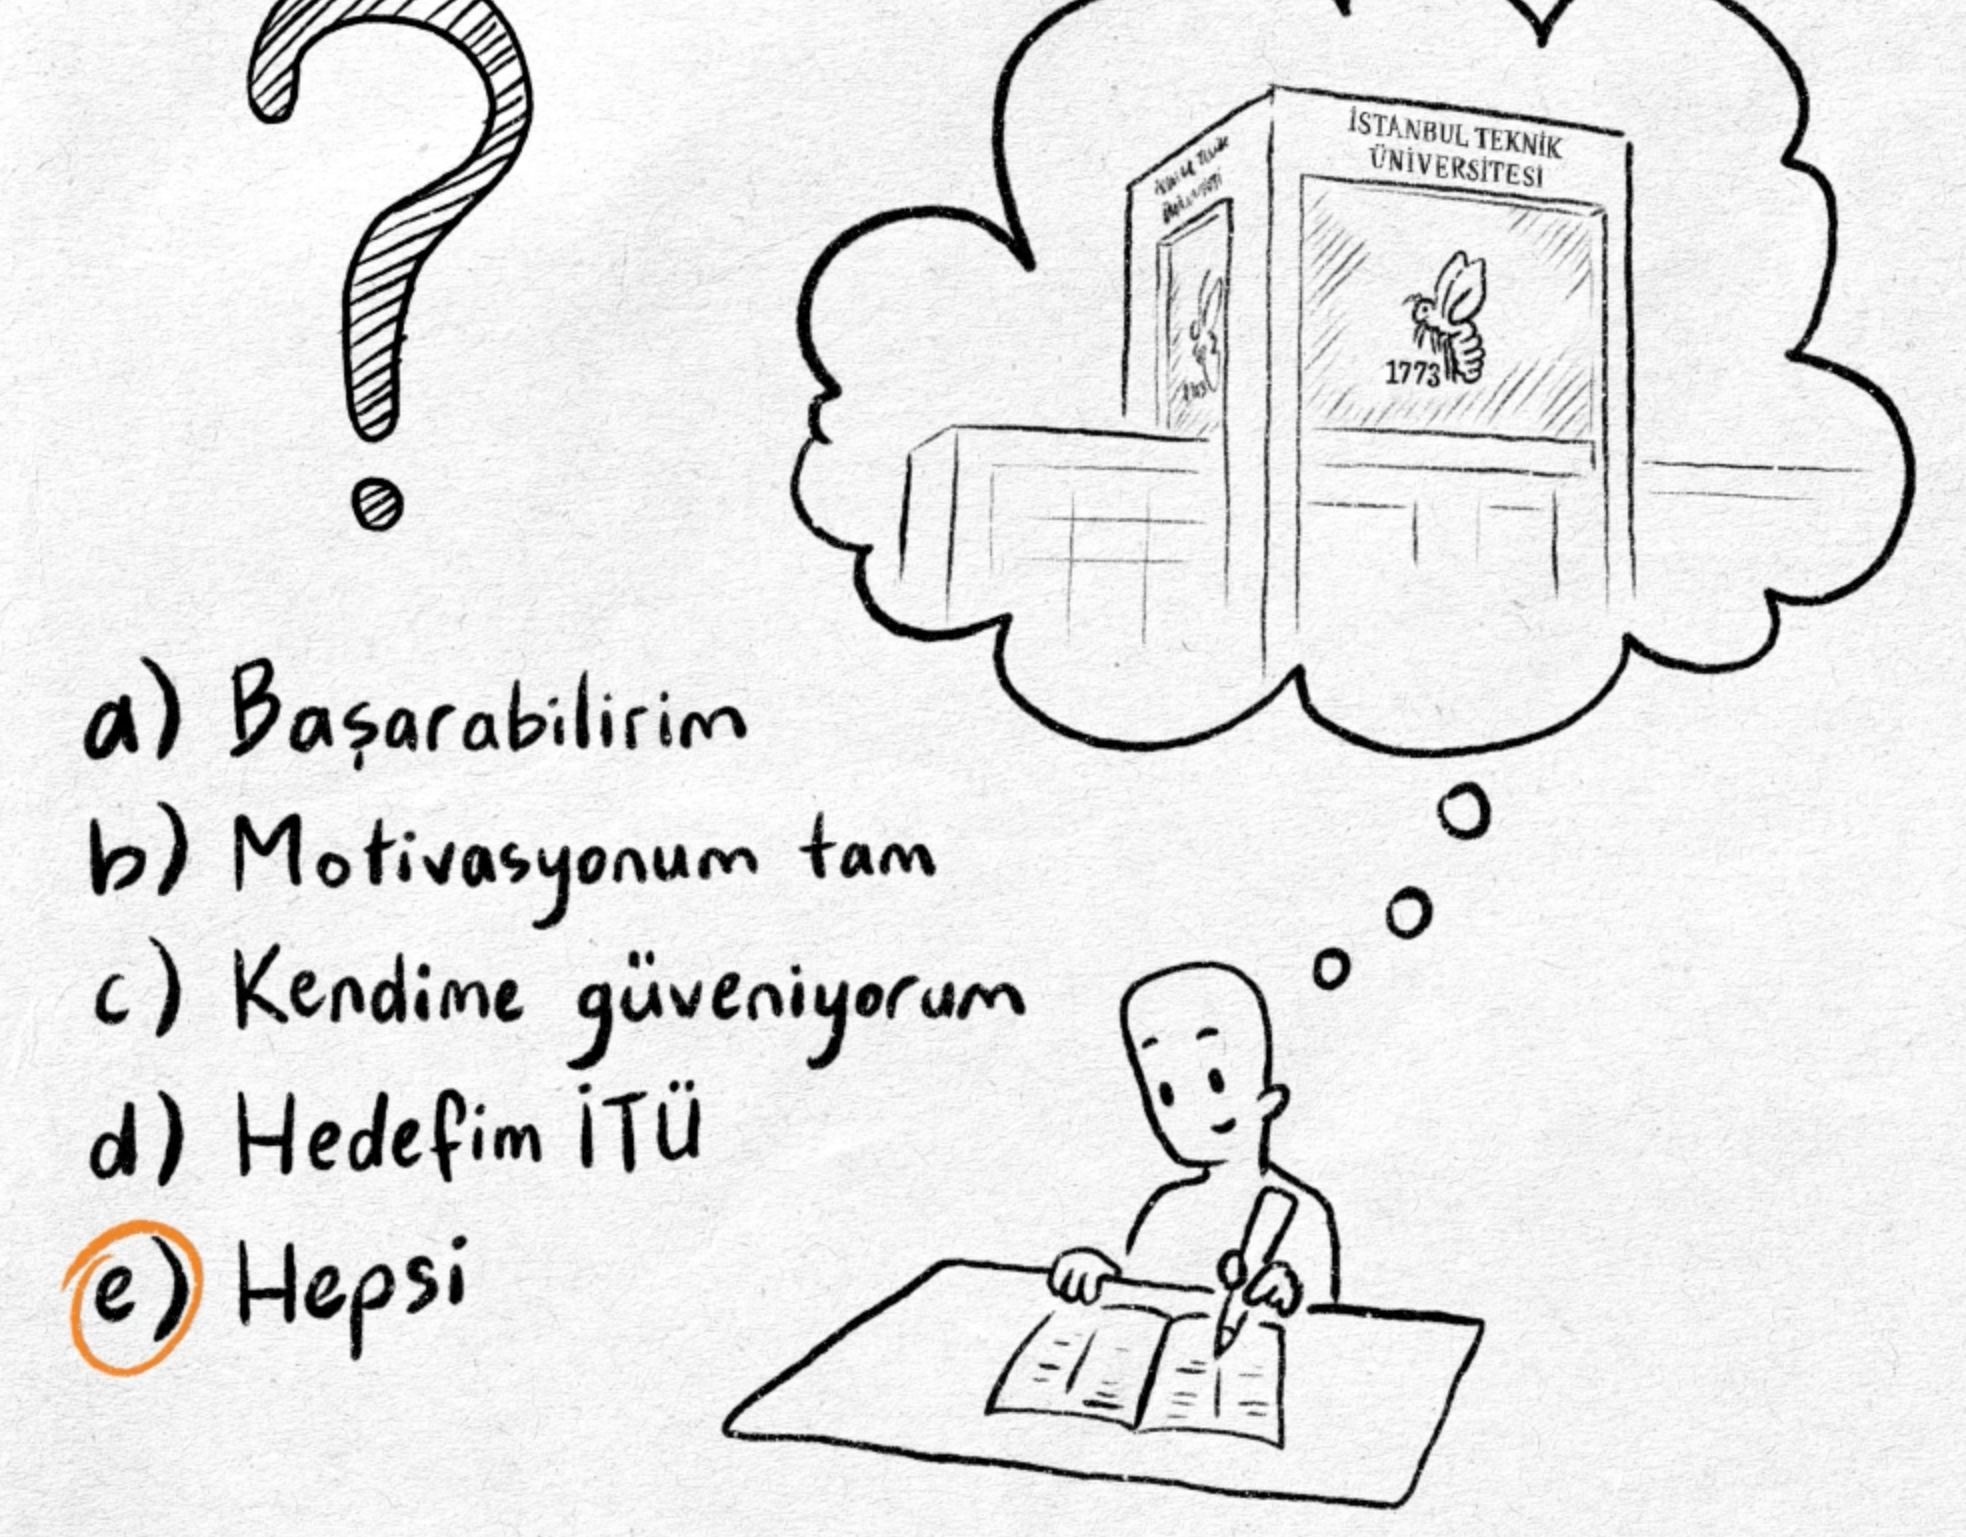 ?
İSTANBUL TEKNİK
ÜNİVERSİTESİ
1773
a) Başarabilirim
b) Motivasyonum tam
c) Kendime güveniyorum
d) Hedefim İTÜ
e) Hepsi